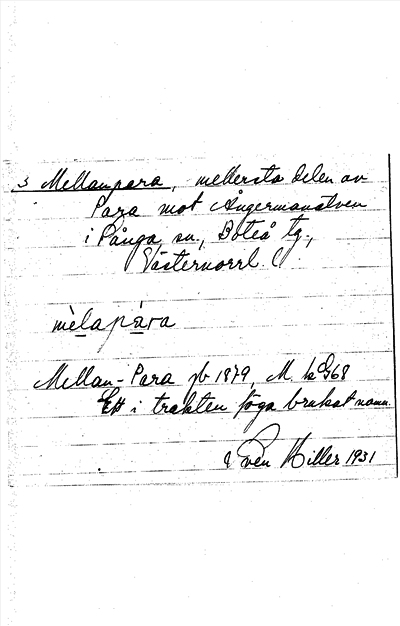 3 Mellanpara, mellersta delen av
Para mot Ångermanälven
i Långa sn., Boteå tg.,
Västernorrl. l
mèlapára
Mellan-Para jb 1879, M.
Ett i trakten föga brukat namn.
Sven Hiller 1931